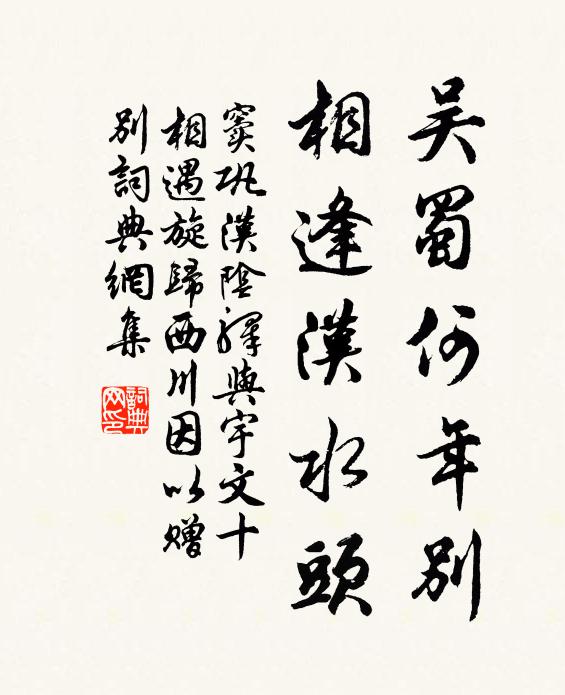 吴蜀何年别
相逢漢水頭
窦巩漢陰驛與宇文十
相遇旋歸西川因以赠
别詞典網集
詞典网印